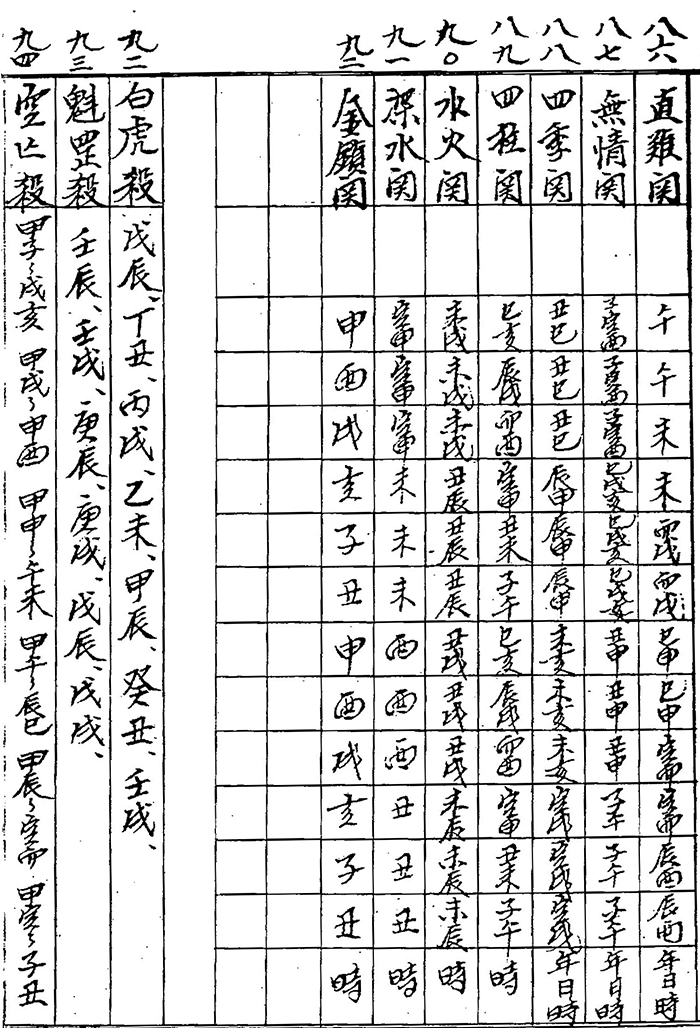 八六 直難関 午 午 未 未 酉戌 酉戌 巳申 巳申 寅卯 寅卯 辰酉 辰酉 年日時
八七 無情関 子寅酉 子寅酉 子寅酉 巳戌亥 巳戌亥 巳戌亥 丑申 丑申 丑申 子午 子午 子午 年日時
八八 四季関 丑巳 丑巳 丑巳 辰申 辰申 辰申 未亥 未亥 未亥 寅戌 寅戌 寅戌 年日時
八九 四柱関 巳亥 辰戌 卯酉 寅申 丑未 子午 巳亥 辰戌 卯酉 寅申 丑未 子午 時
九〇 水火関 未戌 未戌 未戌 丑辰 丑辰 丑辰 丑戌 丑戌 丑戌 未辰 未辰 未辰 時
九一 深水関 寅申 寅申 寅申 未 未 未 酉 酉 酉 丑 丑 丑 時
九二 金鎖関 申 酉 戌 亥 子 丑 申 酉 戌 亥 子 丑 時
九二 白虎殺 戊辰、丁丑、丙戌、乙未、甲辰、癸丑、壬戌、
九三 魁罡殺 壬辰、壬戌、庚辰、庚戌、戊辰、戊戌、
九四 空亡殺 甲子〻戌亥 甲戌〻申酉 甲申〻午未 甲午〻辰巳 甲辰〻寅卯 甲寅〻子丑